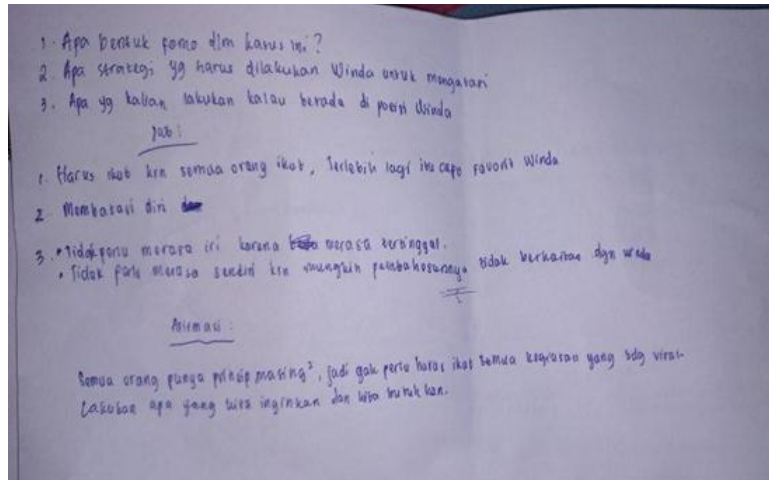 1. Apa bentuk fomo dlm kasus ini?
2. Apa strategi yg harus dilakukan Winda untuk mengatasi
3. Apa yg kalian lakukan kalau berada di posisi Winda
Jwb :
1. Harus ikut krn semua orang ikut, Terlebih lagi itu cafe favorit Winda
2. Membatasi diri
3. • Tidak perlu merasa iri karena merasa tertinggal.
• Tidak perlu merasa sendiri krn mungkin pembahasannya tidak berkaitan dgn winda
Afirmasi :
Semua orang punya prinsip masing², jadi gak perlu harus ikut semua kegiatan yang sdg viral.
Lakukan apa yang kita inginkan dan kita butuhkan.